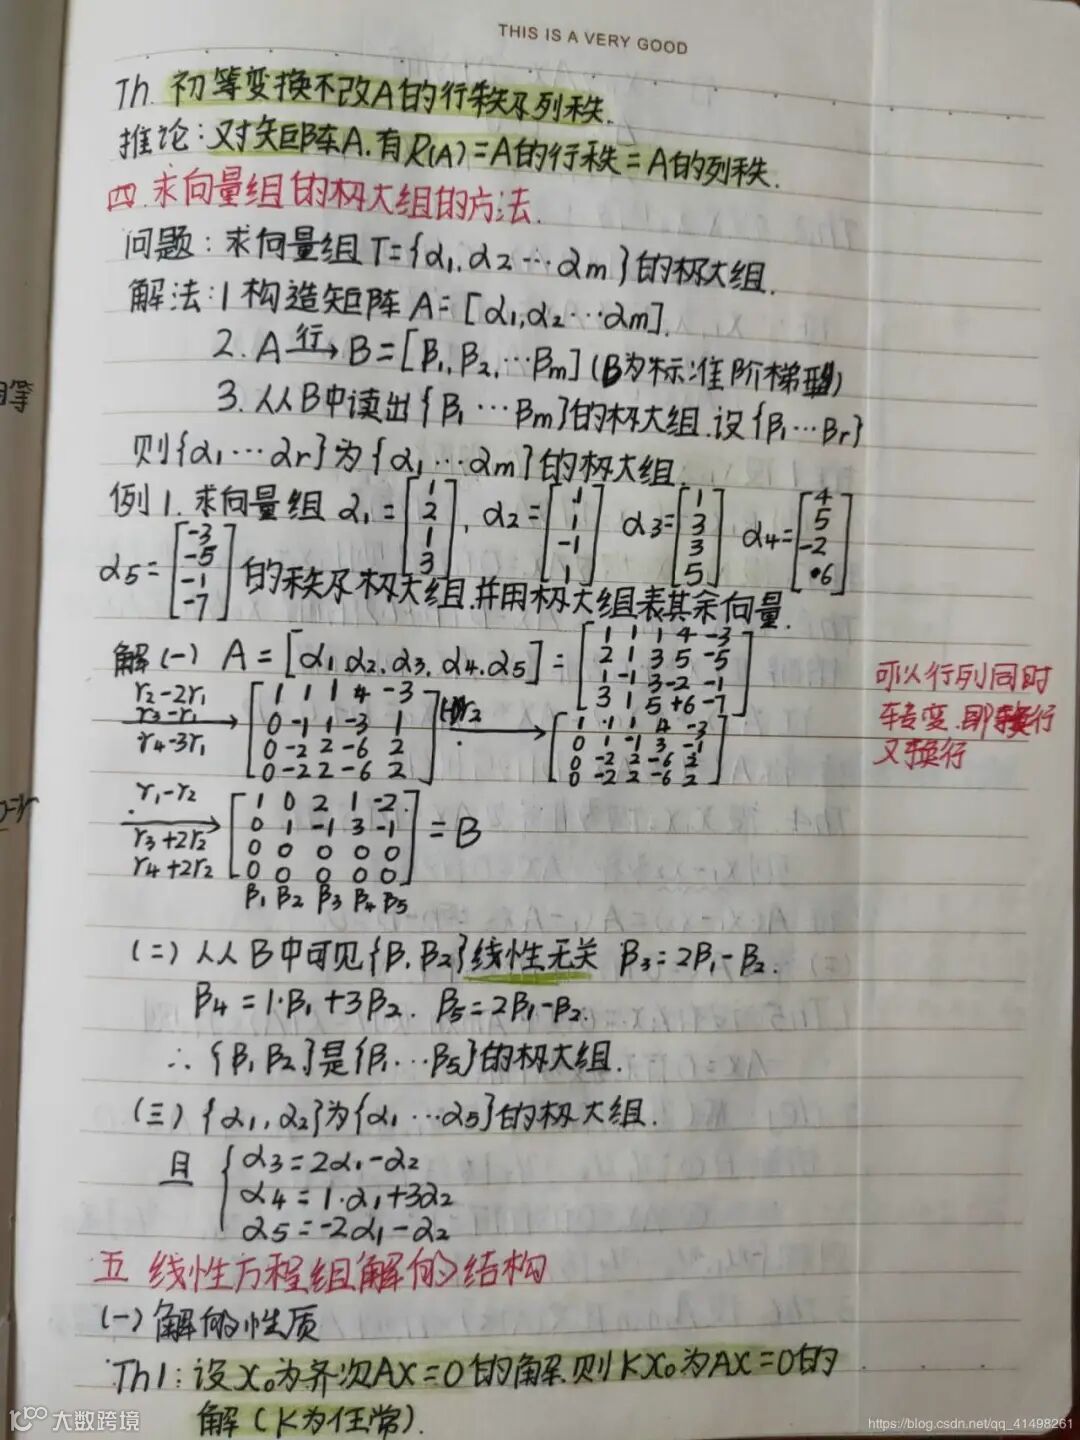 THIS IS A VERY GOOD
Th. 初等变换不改A的行秩及列秩.
推论:对矩阵A.有R(A)=A的行秩=A的列秩.
四.求向量组的极大组的方法.
问题:求向量组T={α1,α2…αm}的极大组.
解法:1 构造矩阵A=[α1,α2…αm].
2. A 行→ B=[β1,β2,…βm](B为标准阶梯型)
3. 从B中读出{β1…βm}的极大组.设{β1…βr}
则{α1…αr}为{α1…αm}的极大组.
例1.求向量组 α1=[1 2 1 3], α2=[1 1 -1 1] α3=[1 3 3 5] α4=[4 5 -2 6]
α5=[-3 -5 -1 -7]的秩及极大组.并用极大组表其余向量.
解(一) A=[α1,α2,α3,α4,α5]=
1 1 1 4 -3
2 1 3 5 -5
1 -1 3 -2 -1
3 1 5 +6 -7
可以行列同时
转变.即换行
又换行
r2-2r1
r3-r1
r4-3r1
→
1 1 1 4 -3
0 -1 1 -3 1
0 -2 2 -6 2
0 -2 2 -6 2
(-1)r2
→
1 1 1 4 -3
0 1 -1 3 -1
0 -2 2 -6 2
0 -2 2 -6 2
r1-r2
r3+2r2
r4+2r2
→
1 0 2 1 -2
0 1 -1 3 -1
0 0 0 0 0
0 0 0 0 0
=B
β1 β2 β3 β4 β5
(二)从B中可见{β1,β2}线性无关 β3=2β1-β2.
β4=1·β1+3β2. β5=2β1-β2.
∴{β1,β2}是{β1…β5}的极大组.
(三){α1,α2}为{α1…α5}的极大组.
且
α3=2α1-α2
α4=1·α1+3α2
α5=-2α1-α2
五 线性方程组解的结构
(一)解的性质
Th1:设X0为齐次AX=0的解.则KX0为AX=0的
解(K为任常).
大数跨境
https://blog.csdn.net/qq_41498261